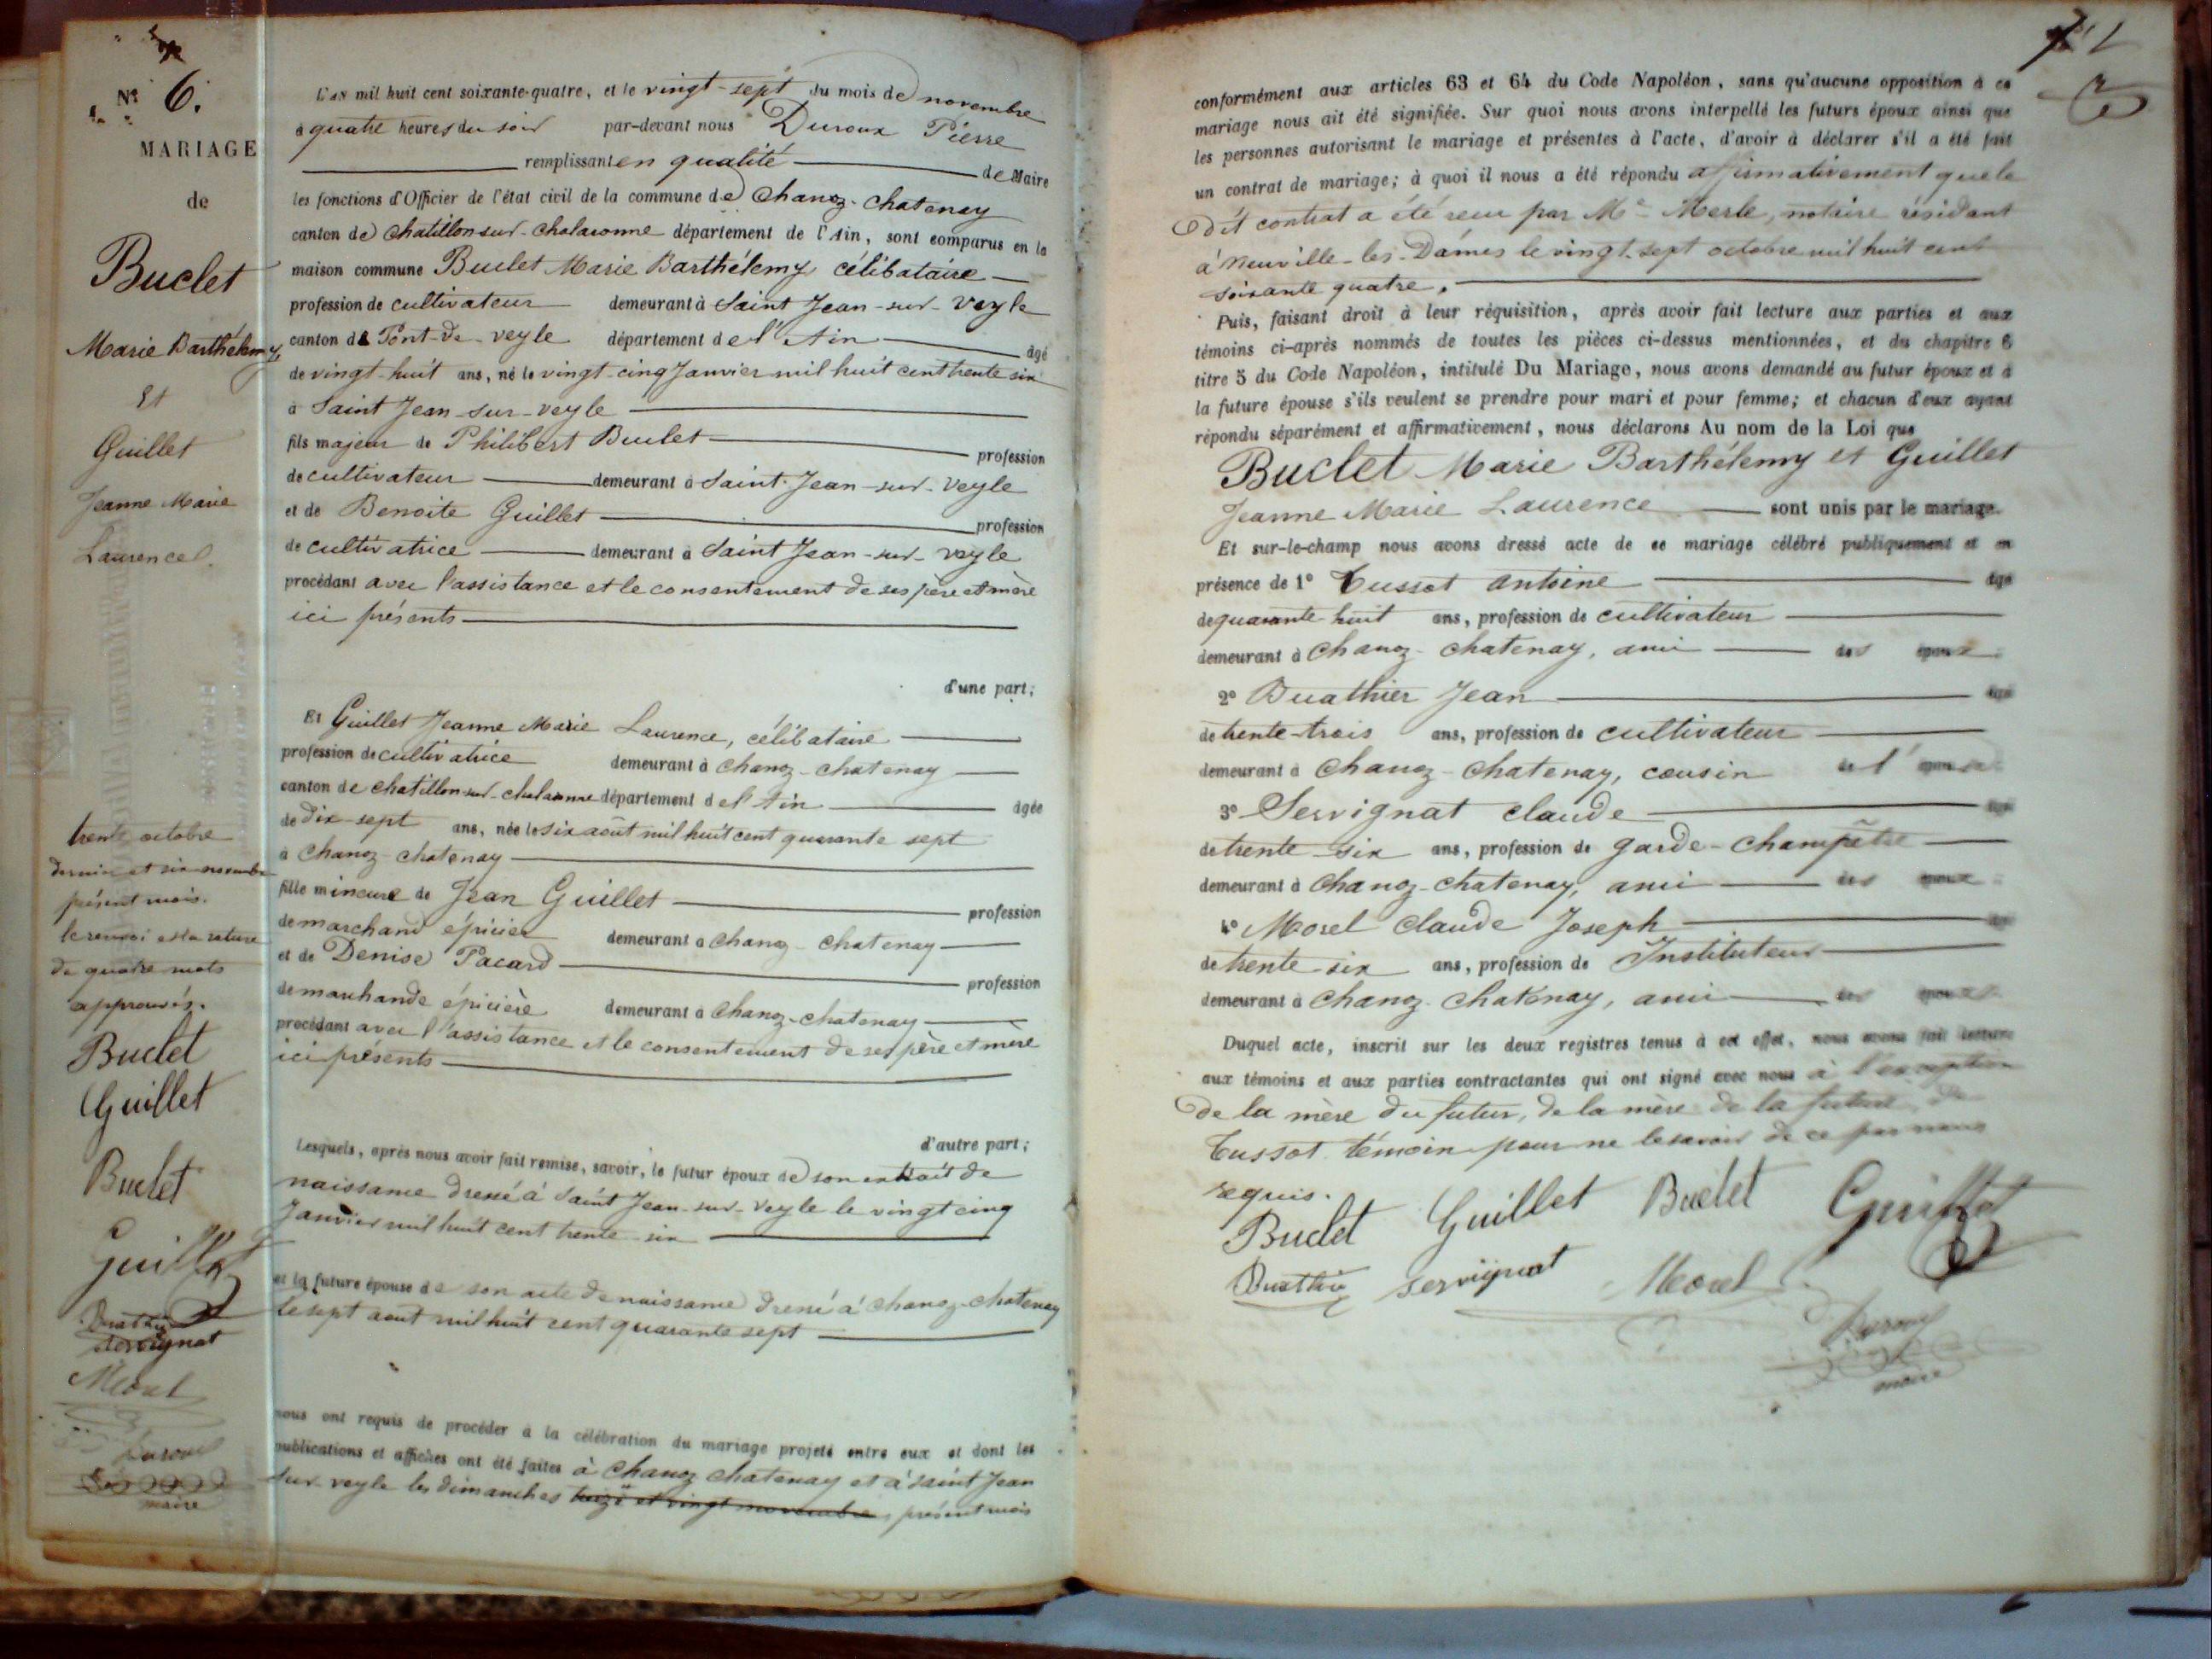 Nº 6.
MARIAGE
de
Buclet
Marie Barthélemy
Et
Guillet
Jeanne Marie
Laurence.
trente octobre
dernier et six novembre
présent mois.
le renvoi et la rature
de quatre mots
approuvés.
Buclet
Guillet
Buclet
Guillet
Buathier
Servignat
Morel
Duroux
maire
L'AN mil huit cent soixante-quatre, et le vingt-sept du mois de novembre
à quatre heures du soir par-devant nous Duroux Pierre
remplissant en qualité de Maire
les fonctions d'Officier de l'état civil de la commune de Chanoz-Chatenay
canton de Chatillon-sur-Chalaronne département de l'Ain, sont comparus en la
maison commune Buclet Marie Barthélemy célibataire
profession de cultivateur demeurant à Saint Jean-sur-Veyle
canton de Pont-de-veyle département de l'Ain âgé
de vingt-huit ans, né le vingt-cinq Janvier mil huit cent trente six
à Saint Jean-sur-veyle
fils majeur de Philibert Buclet profession
de cultivateur demeurant à Saint-Jean-sur-Veyle
et de Benoite Guillet profession
de cultivatrice demeurant à Saint Jean-sur-veyle
procédant avec l'assistance et le consentement de ses père et mère
ici présents
d'une part;
Et Guillet Jeanne Marie Laurence, célibataire
profession de cultivatrice demeurant à Chanoz-Chatenay
canton de Chatillon-sur-chalaronne département de l'Ain âgée
de dix-sept ans, née le six août mil huit cent quarante sept
à Chanoz-chatenay
fille mineure de Jean Guillet profession
de marchand épicier demeurant à Chanoz-Chatenay
et de Denise Pacard profession
de marchande épicière demeurant à Chanoz-Chatenay
procédant avec l'assistance et le consentement de ses père et mère
ici présents
d'autre part;
Lesquels, après nous avoir fait remise, savoir, le futur époux de son extrait de
naissance dressé à Saint Jean-sur-Veyle le vingt cinq
Janvier mil huit cent trente-six
et la future épouse de son acte de naissance dressé à Chanoz-Chatenay
le sept aout mil huit cent quarante sept
nous ont requis de procéder à la célébration du mariage projeté entre eux et dont les
publications et affiches ont été faites à Chanoz Chatenay et à Saint Jean
sur-veyle les dimanches treize et vingt novembre, présent mois
conformément aux articles 63 et 64 du Code Napoléon, sans qu'aucune opposition à ce
mariage nous ait été signifiée. Sur quoi nous avons interpellé les futurs époux ainsi que
les personnes autorisant le mariage et présentes à l'acte, d'avoir à déclarer s'il a été fait
un contrat de mariage; à quoi il nous a été répondu affirmativement que le
dit contrat a été reçu par Me Merle, notaire résidant
à Neuville-les-Dames le vingt-sept octobre mil huit cent
soixante quatre.
Puis, faisant droit à leur réquisition, après avoir fait lecture aux parties et aux
témoins ci-après nommés de toutes les pièces ci-dessus mentionnées, et du chapitre 6
titre 5 du Code Napoléon, intitulé Du Mariage, nous avons demandé au futur époux et à
la future épouse s'ils veulent se prendre pour mari et pour femme; et chacun d'eux ayant
répondu séparément et affirmativement, nous déclarons Au nom de la Loi que
Buclet Marie Barthélemy et Guillet
Jeanne Marie Laurence sont unis par le mariage.
Et sur-le-champ nous avons dressé acte de ce mariage célébré publiquement et en
présence de 1º Tussot Antoine âgé
de quarante-huit ans, profession de cultivateur
demeurant à Chanoz-Chatenay, ami des époux
2º Buathier Jean âgé
de trente-trois ans, profession de cultivateur
demeurant à Chanoz-Chatenay, cousin de l'épouse
3º Servignat Claude âgé
de trente-six ans, profession de garde-Champêtre
demeurant à Chanoz-Chatenay, ami des époux
4º Morel Claude Joseph âgé
de trente-six ans, profession de Instituteur
demeurant à Chanoz-Chatenay, ami des époux
Duquel acte, inscrit sur les deux registres tenus à cet effet, nous avons fait lecture
aux témoins et aux parties contractantes qui ont signé avec nous à l'exception
de la mère du futur, de la mère de la future, de
Tussot témoin pour ne le savoir de ce par nous
requis.
Buclet Guillet Buclet Guillet
Buathier Servignat Morel
Duroux
maire